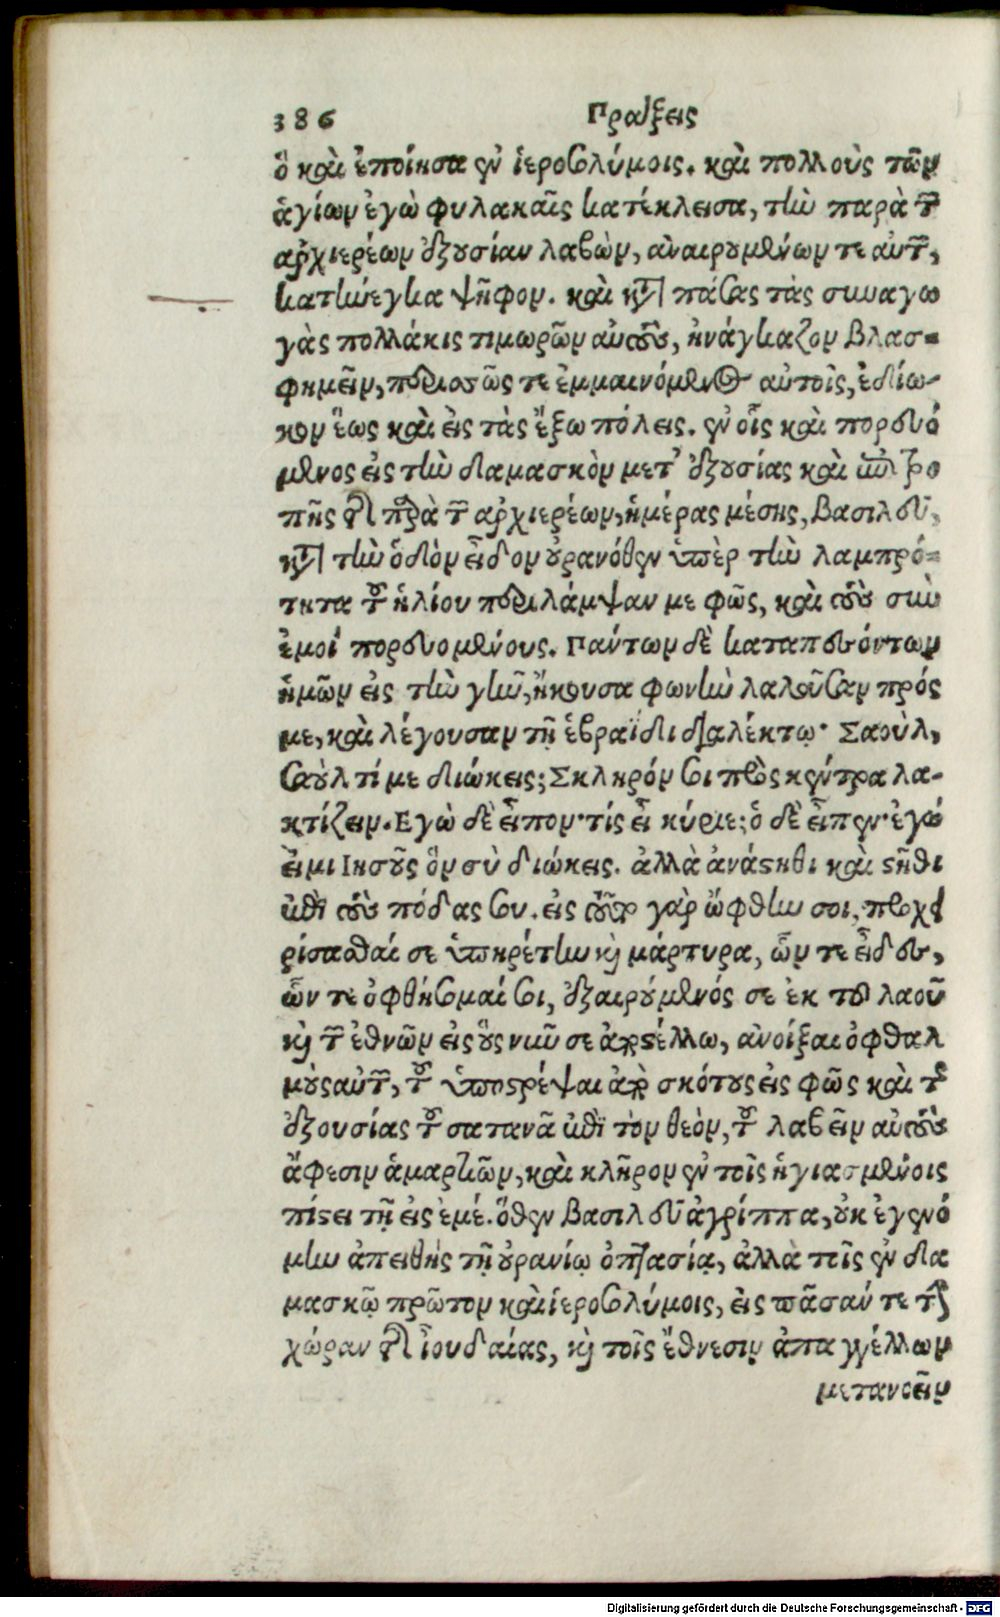 386 Πράξεις
ὃ καὶ ἐποίησα ἐν ἱεροσολύμοις. καὶ πολλοὺς τῶν
ἁγίων ἐγὼ φυλακαῖς κατέκλεισα, τὴν παρὰ τῶν
ἀρχιερέων ἐξουσίαν λαβὼν, ἀναιρουμένων τε αὐτῶν,
κατήνεγκα ψῆφον. καὶ κατὰ πάσας τὰς συναγω
γὰς πολλάκις τιμωρῶν αὐτοὺς, ἠνάγκαζον βλασ-
φημεῖν, περισσῶς τε ἐμμαινόμενος αὐτοῖς, ἐδίω-
κον ἕως καὶ εἰς τὰς ἔξω πόλεις. ἐν οἷς καὶ πορευό
μενος εἰς τὴν δαμασκὸν μετ' ἐξουσίας καὶ ἐπιτρο
πῆς τῆς παρὰ τῶν ἀρχιερέων, ἡμέρας μέσης, βασιλεῦ,
κατὰ τὴν ὁδὸν εἶδον οὐρανόθεν ὑπὲρ τὴν λαμπρό-
τητα τοῦ ἡλίου περιλάμψαν με φῶς, καὶ τοὺς σὺν
ἐμοὶ πορευομένους. Πάντων δὲ καταπεσόντων
ἡμῶν εἰς τὴν γῆν, ἤκουσα φωνὴν λαλοῦσαν πρός
με, καὶ λέγουσαν τῇ ἑβραΐδι διαλέκτῳ· Σαοὺλ,
σαοὺλ τί με διώκεις; Σκληρόν σοι πρὸς κέντρα λα-
κτίζειν. Εγὼ δὲ εἶπον· τίς εἶ κύριε; ὁ δὲ εἶπεν· ἐγώ
εἰμι Ιησοῦς ὃν σὺ διώκεις. ἀλλὰ ἀνάστηθι καὶ στῆθι
ἐπὶ τοὺς πόδας σου. εἰς τοῦτο γὰρ ὤφθην σοι, προχει
ρίσασθαί σε ὑπηρέτην καὶ μάρτυρα, ὧν τε εἶδες,
ὧν τε ὀφθήσομαί σοι, ἐξαιρούμενός σε ἐκ τοῦ λαοῦ
καὶ τῶν ἐθνῶν εἰς οὓς νῦν σε ἀποστέλλω, ἀνοίξαι ὀφθαλ
μοὺς αὐτῶν, τοῦ ὑποστρέψαι ἀπὸ σκότους εἰς φῶς καὶ τῆς
ἐξουσίας τοῦ σατανᾶ ἐπὶ τὸν θεὸν, τοῦ λαβεῖν αὐτοὺς
ἄφεσιν ἁμαρτιῶν, καὶ κλῆρον ἐν τοῖς ἡγιασμένοις
πίστει τῇ εἰς ἐμέ. ὅθεν βασιλεῦ ἀγρίππα, οὐκ ἐγενό
μην ἀπειθὴς τῇ οὐρανίῳ ὀπτασίᾳ, ἀλλὰ τοῖς ἐν δα
μασκῷ πρῶτον καὶ ἱεροσολύμοις, εἰς πᾶσάν τε τὴν
χώραν τῆς ἰουδαίας, καὶ τοῖς ἔθνεσιν ἀπαγγέλλων
μετανοεῖν
Digitalisierung gefördert durch die Deutsche Forschungsgemeinschaft - DFG